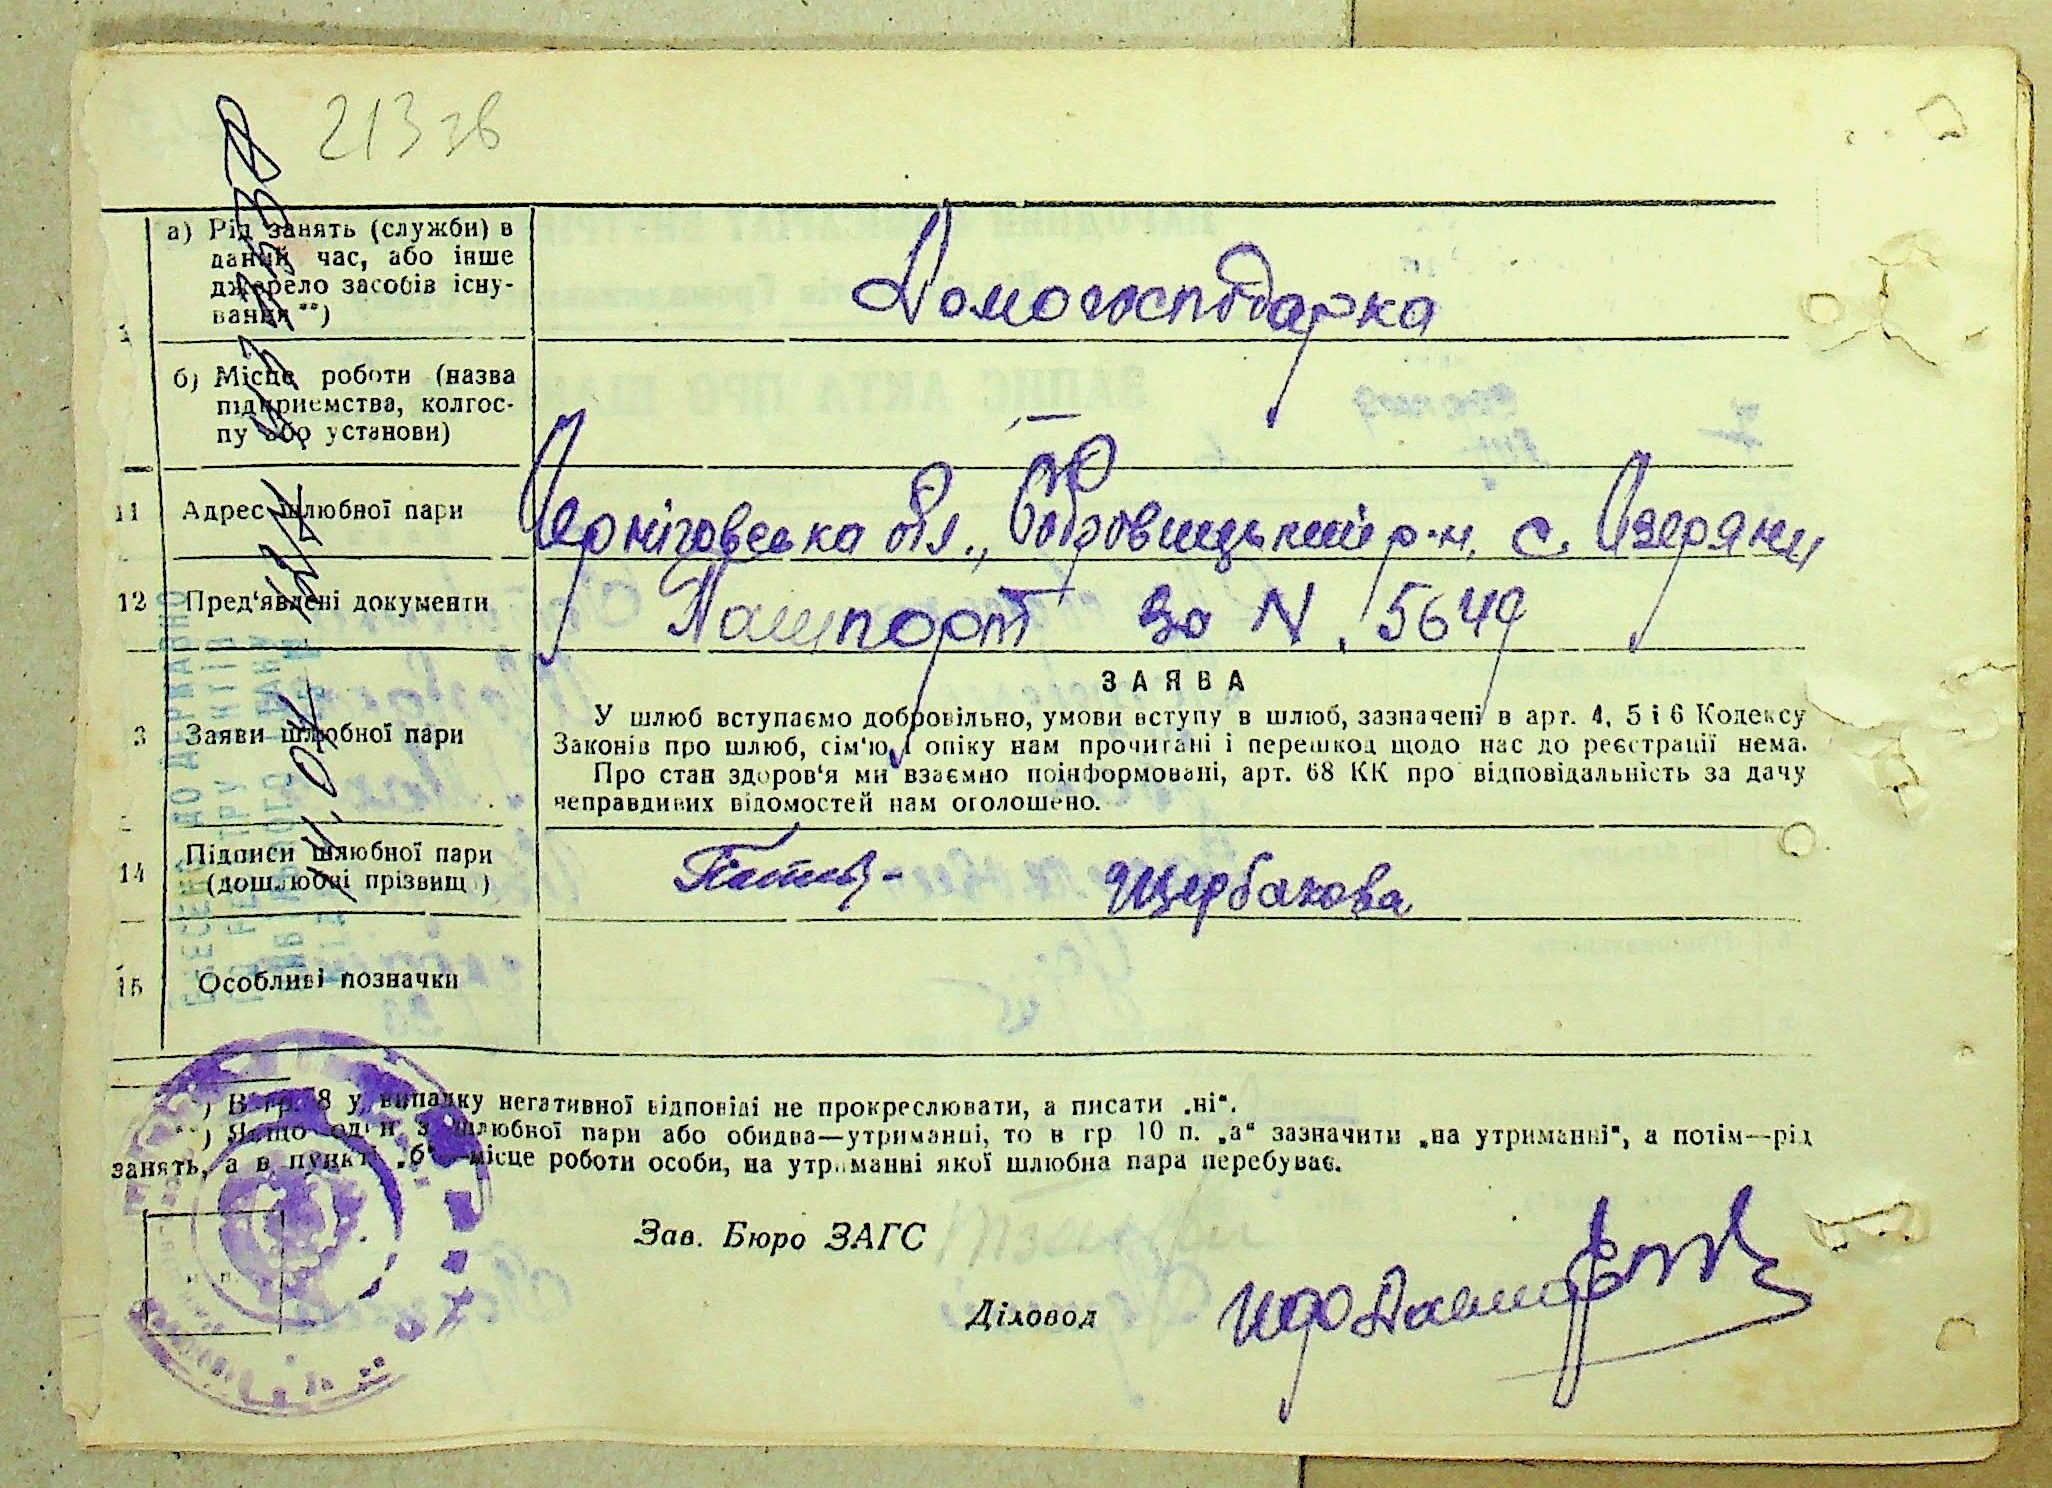 213 зв
а) Рід занять (служби) в
даний час, або інше
джерело засобів існу-
вання **)
Домогосподарка
б) Місце роботи (назва
підприємства, колгос-
пу або установи)
—
11 Адрес шлюбної пари Черніговська обл., Бобровицький р-н. с. Озеряни
12 Пред'явлені документи Пашпорт за N. 5649
З А Я В А
3 Заяви шлюбної пари
У шлюб вступаємо добровільно, умови вступу в шлюб, зазначені в арт. 4, 5 і 6 Кодексу
Законів про шлюб, сім'ю і опіку нам прочитані і перешкод щодо нас до реєстрації нема.
Про стан здоров'я ми взаємно поінформовані, арт. 68 КК про відповідальність за дачу
неправдивих відомостей нам оголошено.
14 Підписи шлюбної пари
(дошлюбні прізвищ )
Щербакова
15 Особливі позначки
) В гр. 8 у випадку негативної відповіді не прокреслювати, а писати „ні“.
**) Якщо один з шлюбної пари або обидва—утриманці, то в гр 10 п. „а“ зазначити „на утриманні“, а потім—рід
занять, а в пункті „б“—місце роботи особи, на утриманні якої шлюбна пара перебуває.
Зав. Бюро ЗАГС
Діловод